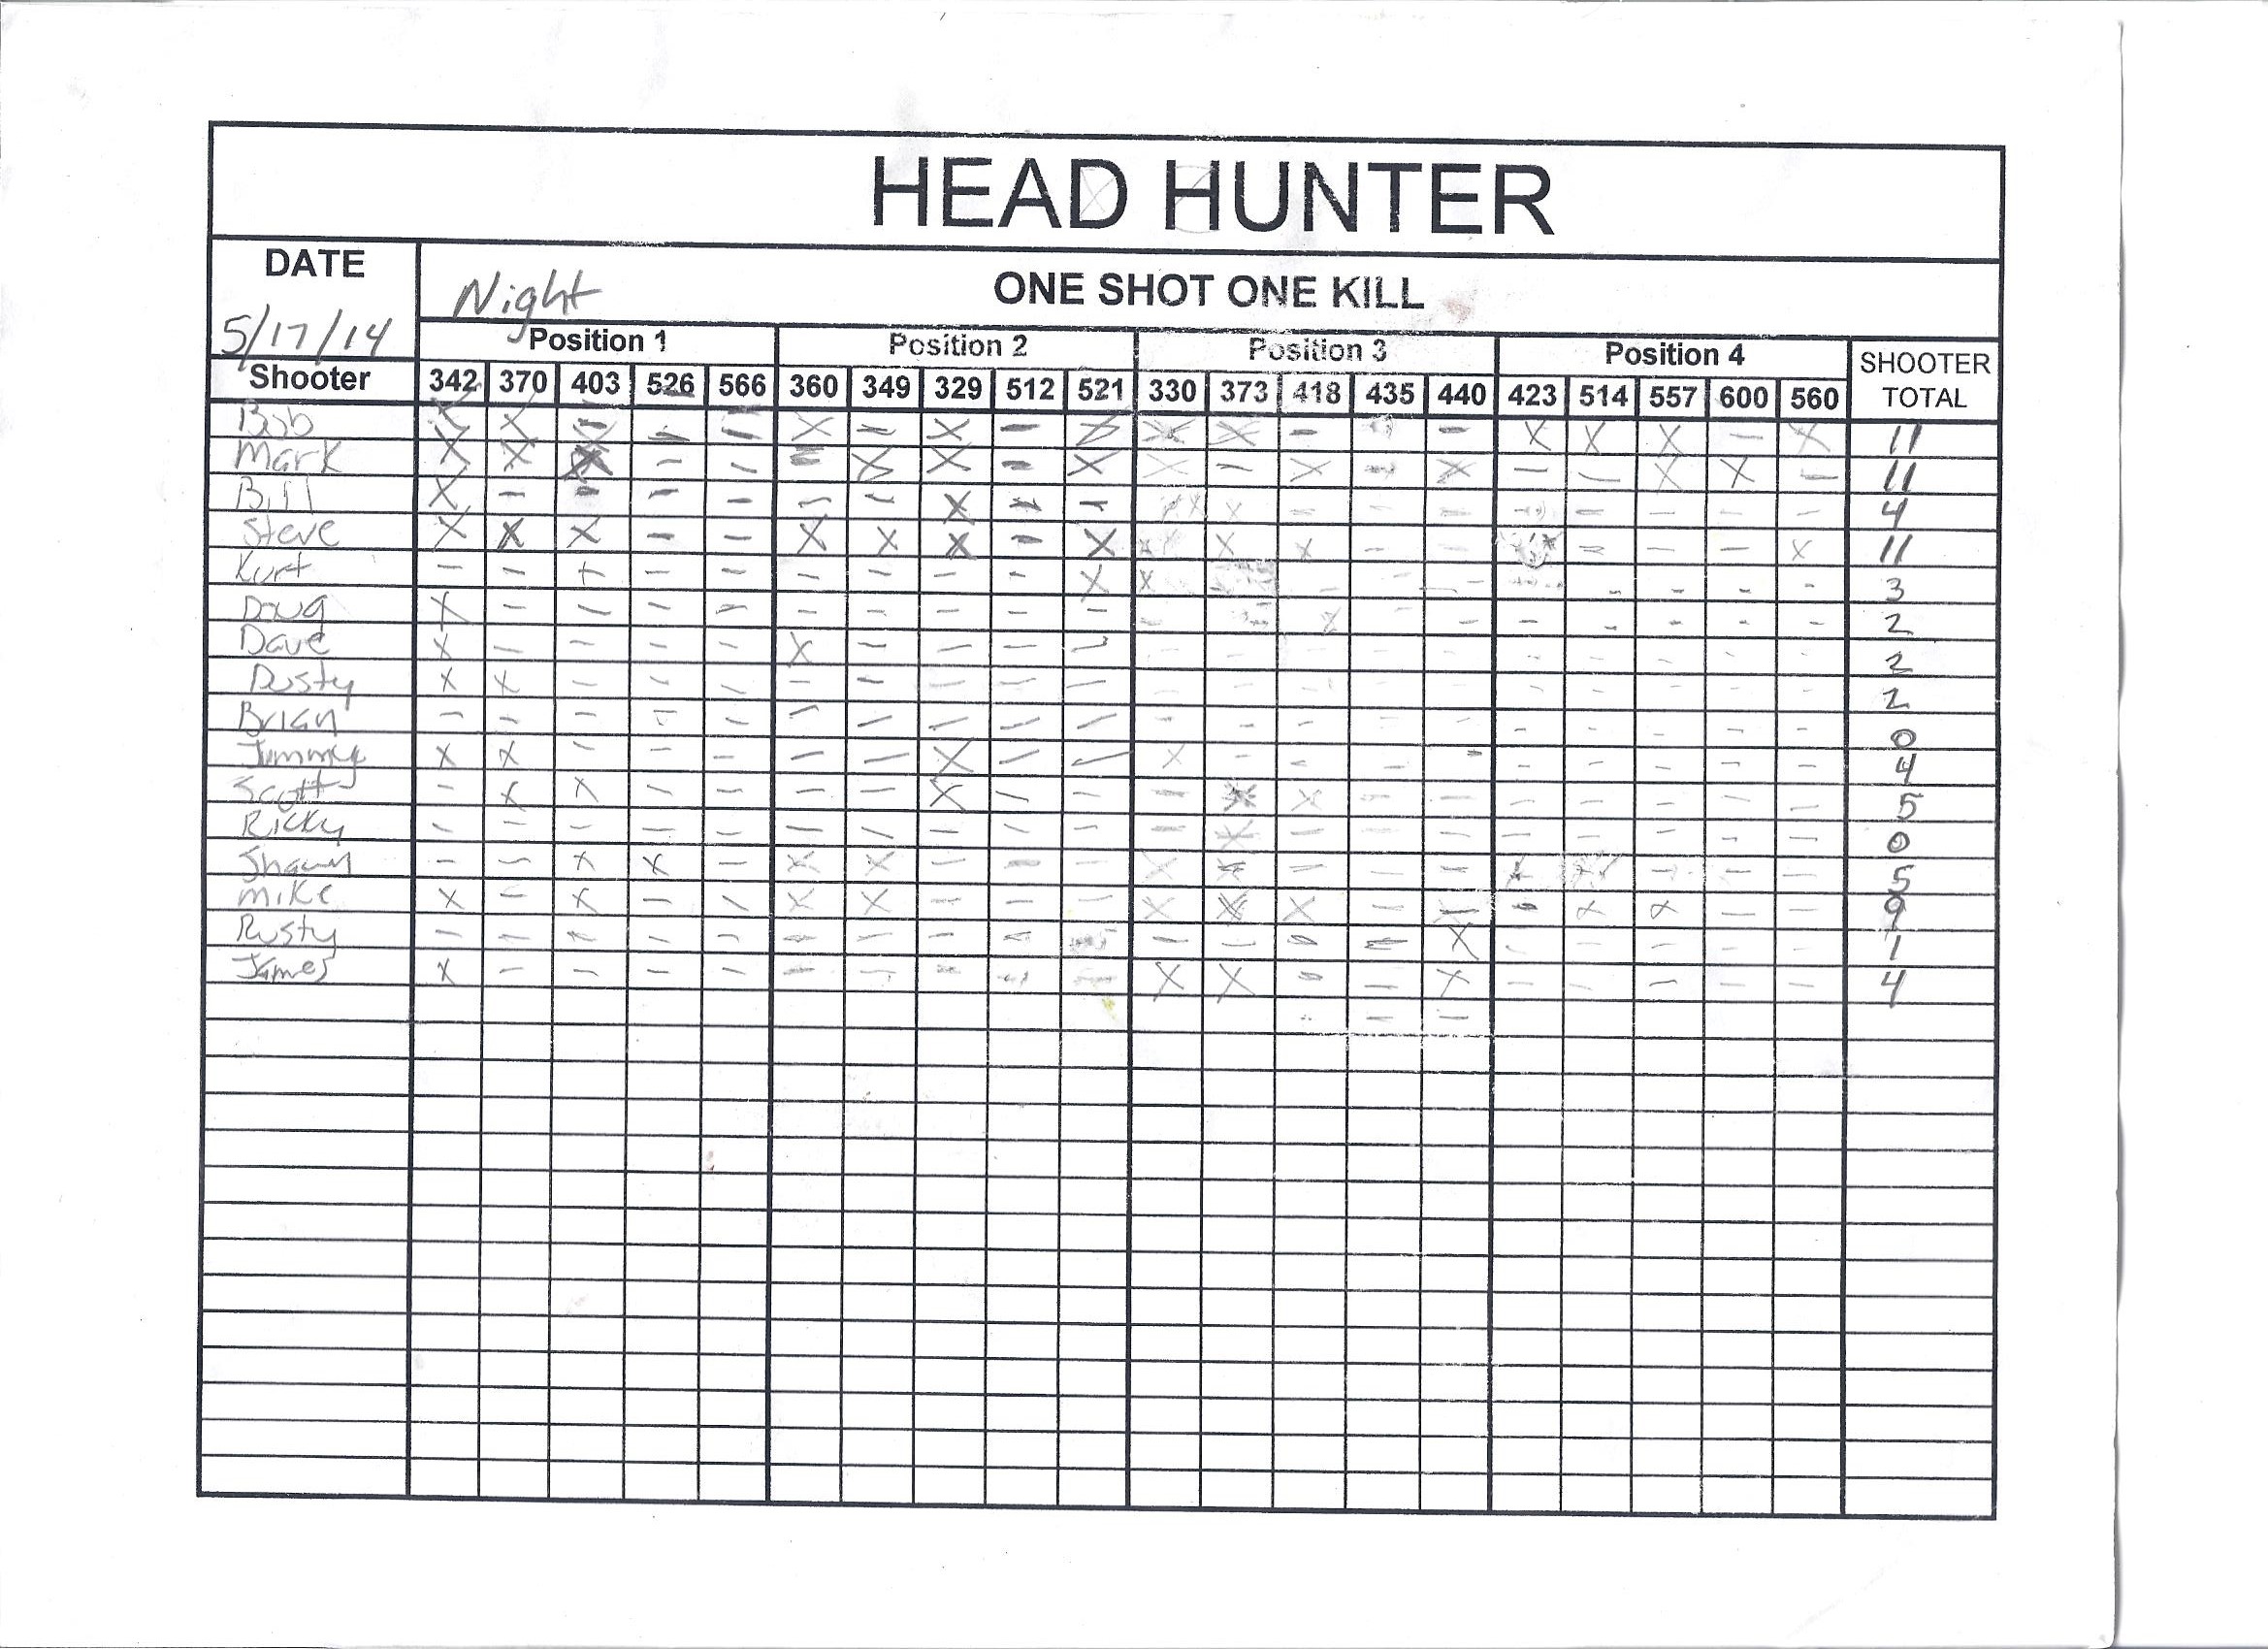 HEAD HUNTER
DATE
Night
ONE SHOT ONE KILL
5/17/14
Position 1 Position 2 Position 3 Position 4 SHOOTER TOTAL
Shooter 342 370 403 526 566 360 349 329 512 521 330 373 418 435 440 423 514 557 600 560
Bob X X - - - X - X - X X X - - - X X X - X 11
Mark X X X - - - X X - X X - X - X - - X X - 11
Bill X - - - - - - X - - X X - - - - - - - 4
Steve X X X - - X X X - X X X X - - - - - X 11
Kurt - - + - - - - - - X X - - - - - - - 3
Doug X - - - - - - - - - - - X - - - - - - - 2
Dave X - - - - X - - - - - - - - - - - - - - 2
Dusty X X - - - - - - - - - - - - - - - - - - 2
Brian - - - - - - - - - - - - - - - - - - - - 0
Jimmy X X - - - - - X - - X - - - - - - - - - 4
Scott - X X - - - - X - - - X X - - - - - - - 5
Ricky - - - - - - - - - - - - - - - - - - - 0
Shawn - - X X - X X - - - X - - - - - - - 5
Mike X - X - - X X - - - X X X - - - X X - - 9
Rusty - - - - - - - - - - - - - - X - - - - - 1
James X - - - - - - - - - X X - - X - - - - - 4
- - -